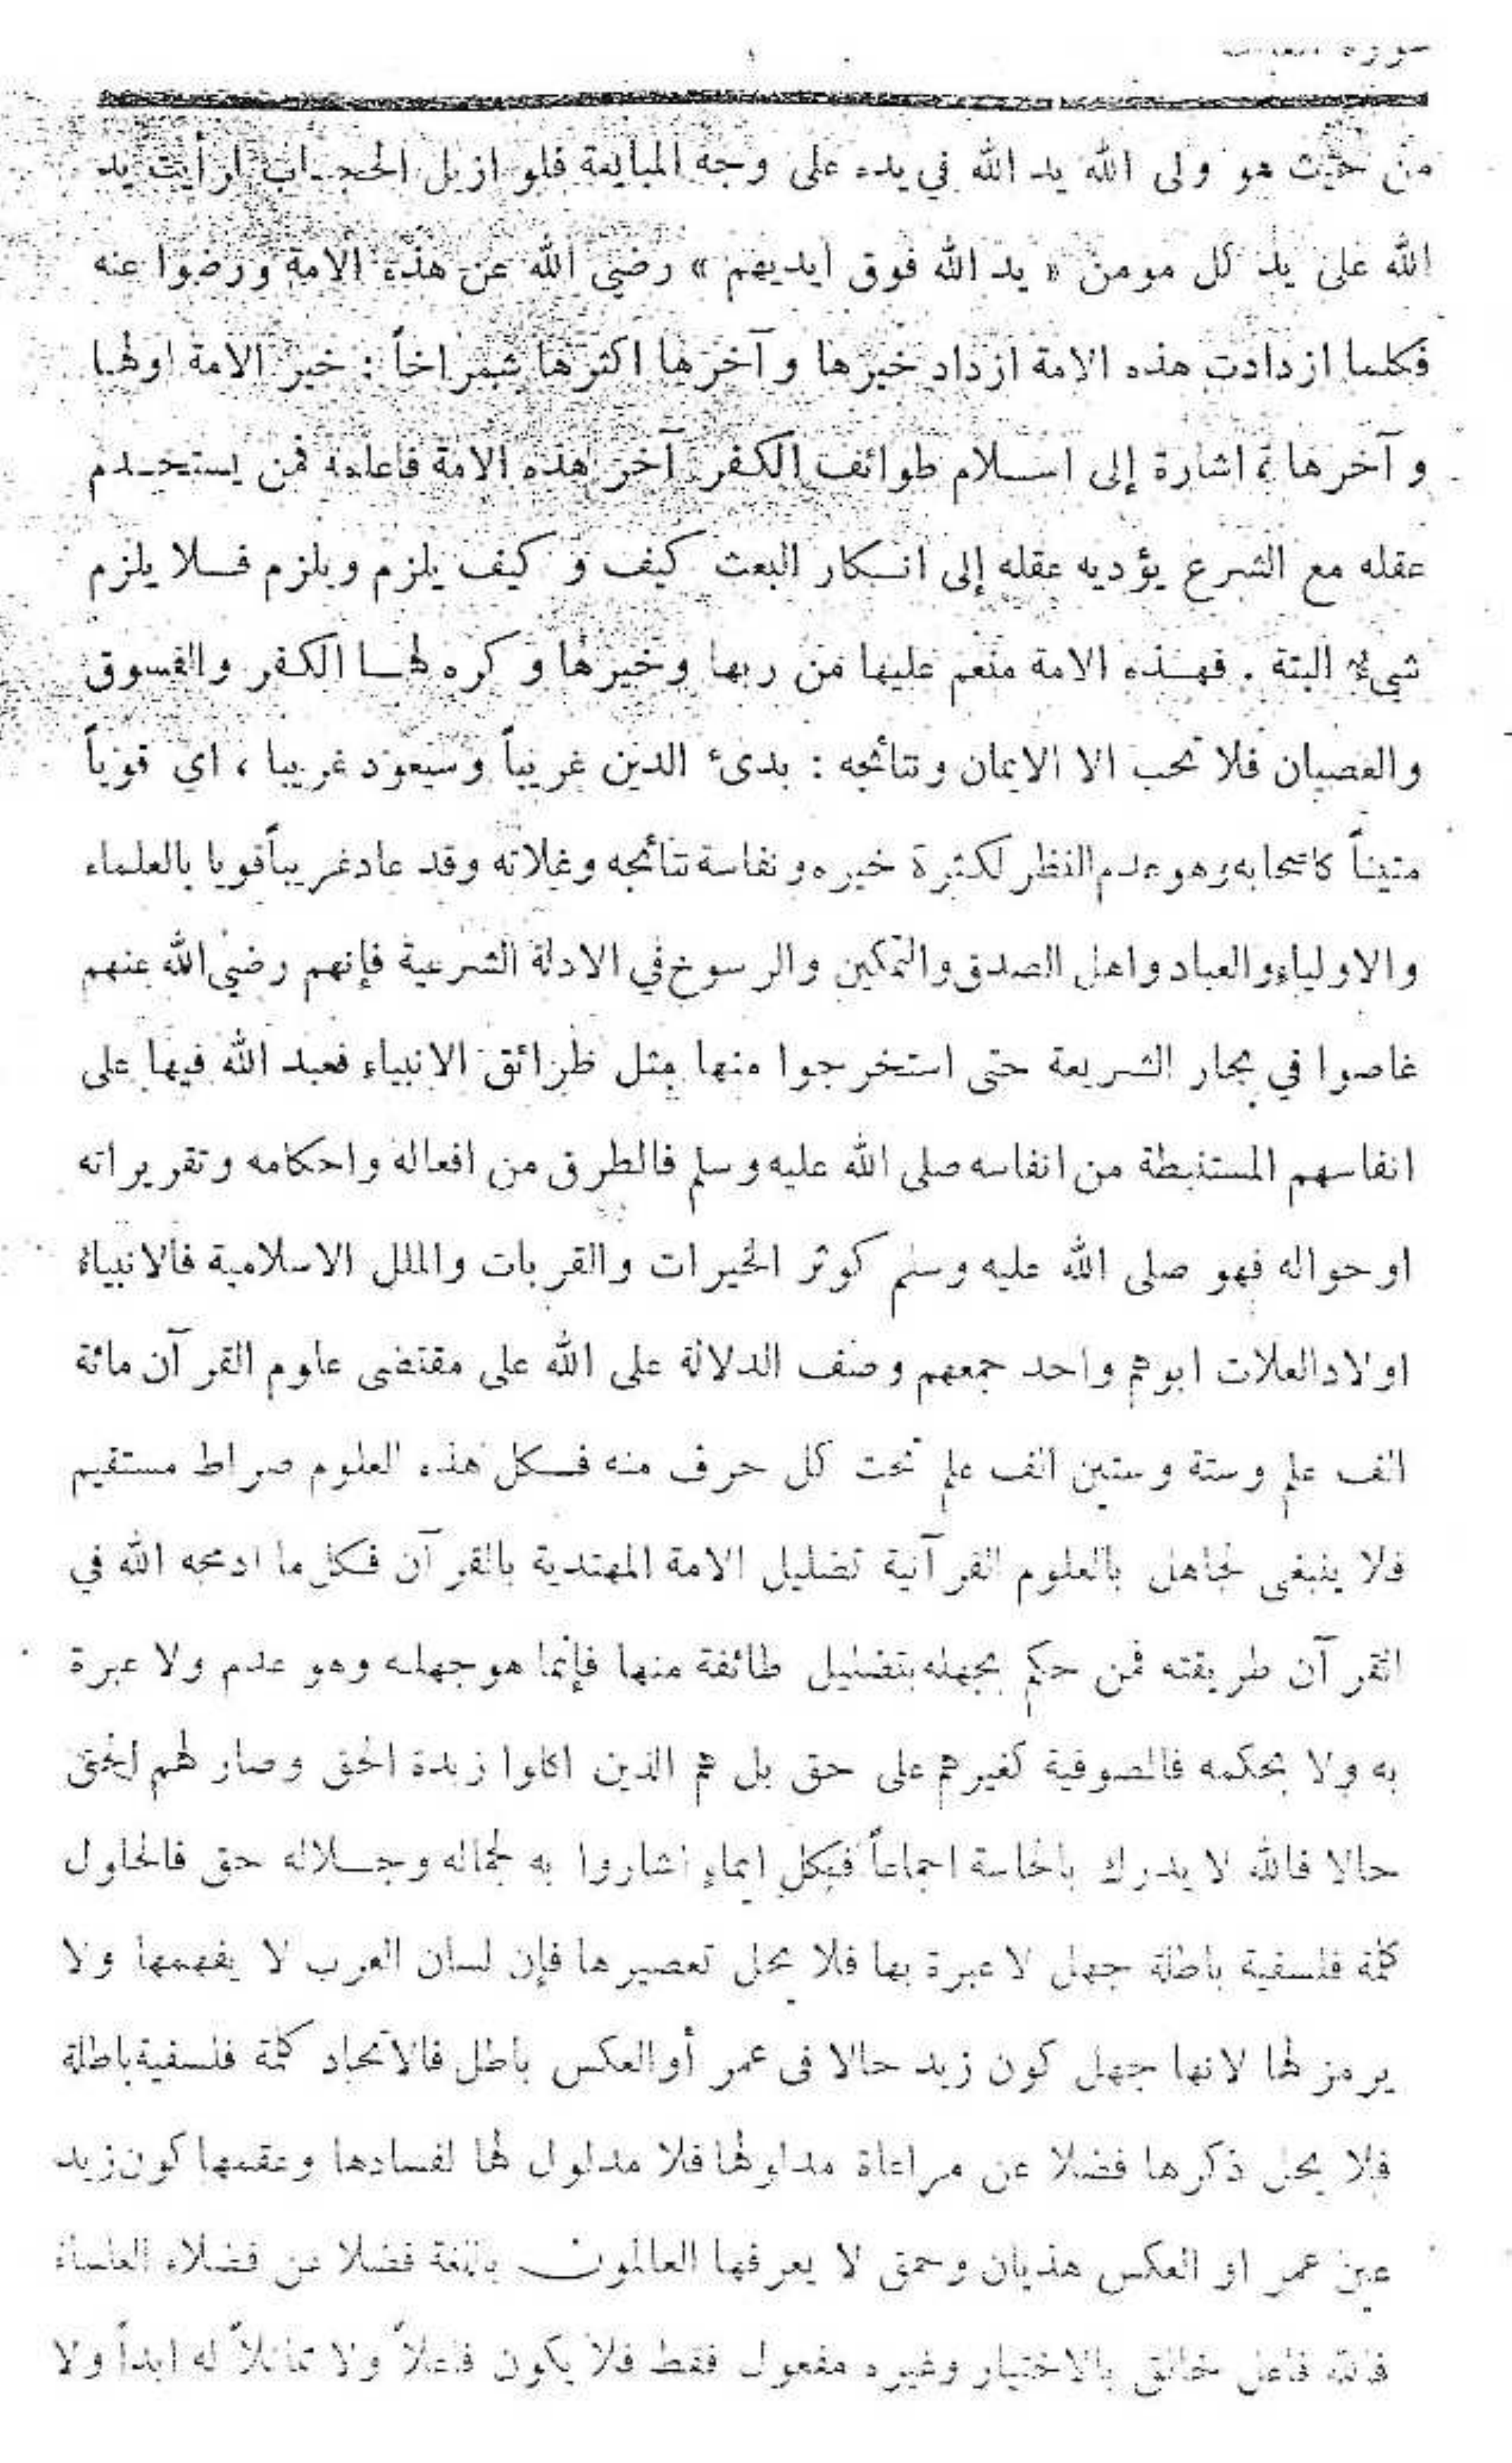 سورة
من حيث هو ولى الله يد الله في يده على وجه المبايعة فلو ازيل الحجـاب لرأيت يد
الله على يد كل مومن « يد الله فوق ايديهم » رضي الله عن هذه الامة ورضوا عنه
فكلما ازدادت هذه الامة ازداد خيرها و آخرها اكثرها شمراخاً : خير الامة اولهـا
و آخرها ثم اشارة إلى اسـلام طوائف الكفر آخر هذه الامة فاعلمه فمن يستخـدم
عقله مع الشرع يؤديه عقله إلى انـكار البعث كيف و كيف يلزم ويلزم فـلا يلزم
شيء البتة . فهـذه الامة منعم عليها من ربها وخيرها و كره لهـا الكفر والفسوق
والعصيان فلا تحب الا الايمان ونتائجه : بدىء الدين غريباً وسيعود غريبا ، اي قوياً
متيناً كاصحابه وهو عدم النظر لكثرة خيره ونفاسة نتائجه وغلاته وقد عاد غريباً قويا بالعلماء
والاولياء والعباد واهل الصدق والتمكين والرسوخ في الادلة الشرعية فإنهم رضي الله عنهم
غاصوا في بحار الشريعة حتى استخرجوا منها مثل طرائق الانبياء فعبد الله فيها على
انفاسهم المستنبطة من انفاسه صلى الله عليه وسلم فالطرق من افعاله واحكامه وتقريراته
او حواله فهو صلى الله عليه وسلم كوثر الخيرات والقربات والملل الاسلامية فالانبياء
اولاد العلات ابوهم واحد جمعهم وصف الدلالة على الله على مقتضى علوم القرآن مائة
الف علم وستة وستين الف علم تحت كل حرف منه فـكل هذه العلوم صراط مستقيم
فلا ينبغى لجاهل بالعلوم القرآنية تضليل الامة المهتدية بالقرآن فـكل ما ادمجه الله في
القرآن طريقته فمن حكم بجهله بتضليل طائفة منها فإنما هو جهلـه وهو عدم ولا عبرة
به ولا بحكمه فالصوفية كغيرهم على حق بل هم الذين اكلوا زبدة الحق وصار لهم الحق
حالا فالله لا يدرك بالحاسة اجماعاً فبكل ايماء اشاروا به لجماله وجـلاله حق فالحلول
كلمة فلسفية باطلة جهل لا عبرة بها فلا يحل تعصيرها فإن لسان العرب لا يفهمها ولا
يرمز لها لانها جهل كون زيد حالا فى عمر أو العكس باطل فالاتحاد كلمة فلسفية باطلة
فلا يحل ذكرها فضلا عن مراعاة مدلولها فلا مدلول لها لفسادها وعقمها كون زيد
عين عمر او العكس هذيان وحمق لا يعرفها العالمون باللغة فضلا عن فضلاء العلماء
فالله فاعل خالق بالاختيار وغيره مفعول فقط فلا يكون فاعلاً ولا مماثلاً له ابداً ولا